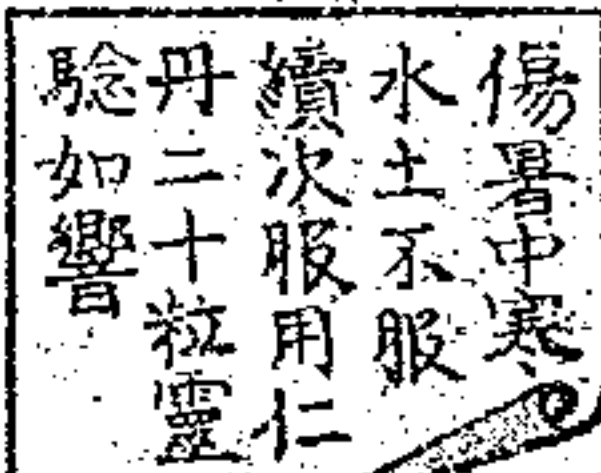 傷暑中寒
水土不服
續次服用仁
丹二十粒靈
騐如響